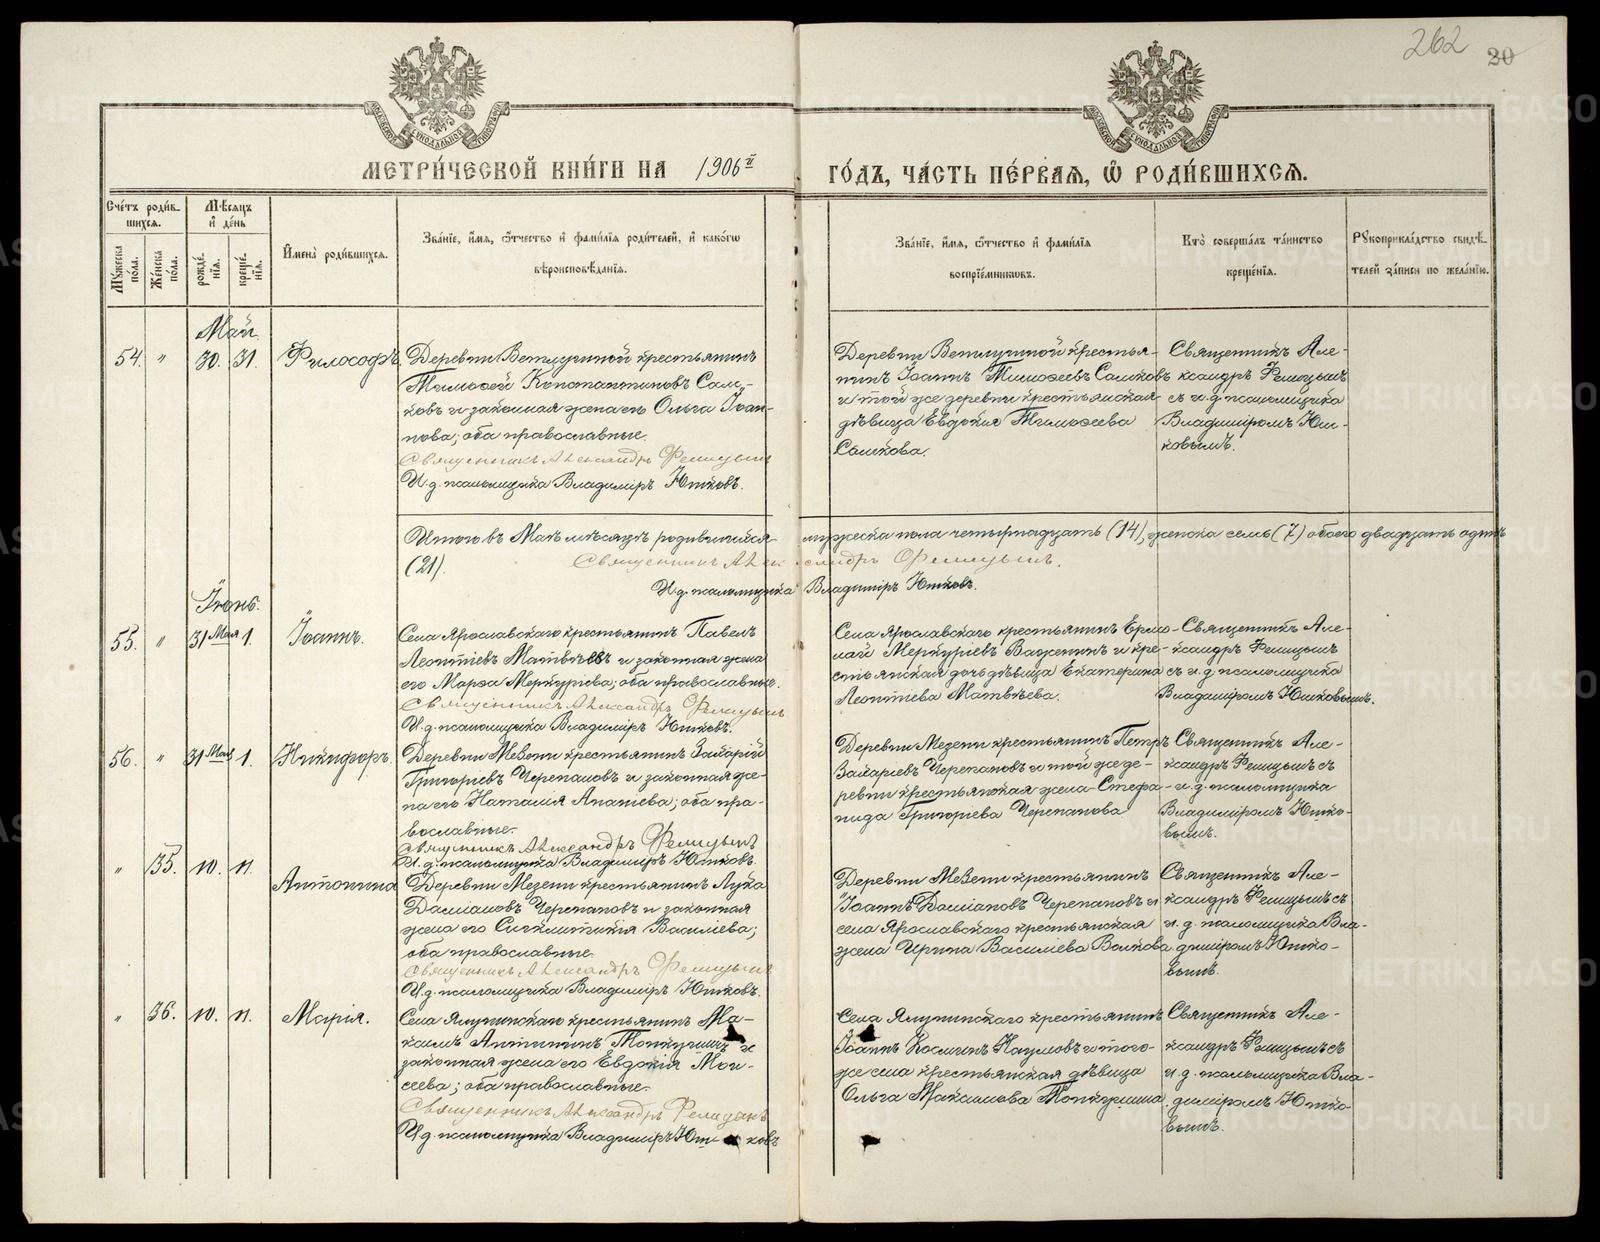 262 20
МЕТРИ́ЧЕСКОЙ КНИ́ГИ НА 1906й ГО́ДЪ, ЧА́СТЬ ПЕ́РВАЯ, Ѡ РОДИ́ВШИХСЯ.
Счётъ роди́в-
шихся.
Мѣсяцъ
и де́нь
Мꙋжеска по́ла.
Же́нска по́ла.
рожде́нія.
креще́нія.
Имена̀ роди́вшихся.
Зва́ніе, и́мя, ѻ́тчество и фами́лія роди́телей, и како́гѡ
вѣроисповѣ́данія.
Зва́ніе, и́мя, ѻ́тчество и фами́лія
воспріе́мниковъ.
Кто̀ соверша́лъ та́инство
креще́нія.
Рꙋкоприкла́дство свидѣ́-
телей за́писи по жела́нію.
Май.
54. " 30. 31. Философъ.
Деревни Ветлугиной крестьянинъ
Тимоѳей Константиновъ Саш-
ковъ и законная жена его Ольга Іоан-
нова; оба православные.
Священникъ Александръ Фелицынъ
И. д. псаломщика Владиміръ Юшковъ.
Деревни Ветлугиной крестья-
нинъ Іоаннъ Тимоѳеевъ Сашковъ
и той же деревни крестьянская
дѣвица Евдокія Тимоѳеева
Сашкова.
Священникъ Але-
ксандръ Фелицынъ
съ и. д. псаломщика
Владиміромъ Юш-
ковымъ.
Итого въ Маѣ мѣсяцѣ родившихся мужеска пола четырнадцать (14), женска семь (7) обоего двадцать одинъ
(21). Священникъ Александръ Фелицынъ.
И. д. псаломщика Владиміръ Юшковъ.
Іюнь.
55. " 31 Мая 1. Іоаннъ.
Села Ярославскаго крестьянинъ Павелъ
Леонтіевъ Матвѣевъ и законная жена
его Марѳа Меркуріева; оба православные.
Священникъ Александръ Фелицынъ
И. д. псаломщика Владиміръ Юшковъ.
Села Ярославскаго крестьянинъ Ермо-
лай Меркуріевъ Важенинъ и кре-
стьянская дочь дѣвица Екатерина
Леонтіева Матвѣева.
Священникъ Але-
ксандръ Фелицынъ
съ и. д. псаломщика
Владиміромъ Юшковымъ.
56. " 31 Мая 1. Никифоръ.
Деревни Мезени крестьянинъ Захарій
Григоріевъ Черепановъ и законная же-
на его Наталія Ананіева; оба пра-
вославные.
Священникъ Александръ Фелицынъ
И. д. псаломщика Владиміръ Юшковъ.
Деревни Мезени крестьянинъ Петръ
Захаріевъ Черепановъ и той же де-
ревни крестьянская жена Стефа-
нида Григоріева Черепанова
Священникъ Але-
ксандръ Фелицынъ съ
и. д. псаломщика
Владиміромъ Юшко-
вымъ.
" 35. 10. 11. Антонина
Деревни Мезени крестьянинъ Лука
Даміановъ Черепановъ и законная
жена его Сигклитикія Василіева;
оба православные.
Священникъ Александръ Фелицынъ
И. д. псаломщика Владиміръ Юшковъ.
Деревни Мезени крестьянинъ
Іоаннъ Даміановъ Черепановъ и
села Ярославскаго крестьянская
жена Ирина Василіева Волкова
Священникъ Але-
ксандръ Фелицынъ съ
и. д. псаломщика Вла-
диміромъ Юшко-
вымъ.
" 36. 10. 11. Марія.
Села Ялунинскаго крестьянинъ Ма-
ксимъ Антипинъ Топкушинъ и
законная жена его Евдокія Мои-
сеева; оба православные.
Священникъ Александръ Фелицынъ
И. д. псаломщика Владиміръ Юшковъ
Села Ялунинскаго крестьянинъ
Іоаннъ Косминъ Наумовъ и того-
же села крестьянская дѣвица
Ольга Максимова Топкушина
Священникъ Але-
ксандръ Фелицынъ съ
и. д. псаломщика Вла-
диміромъ Юшко-
вымъ.